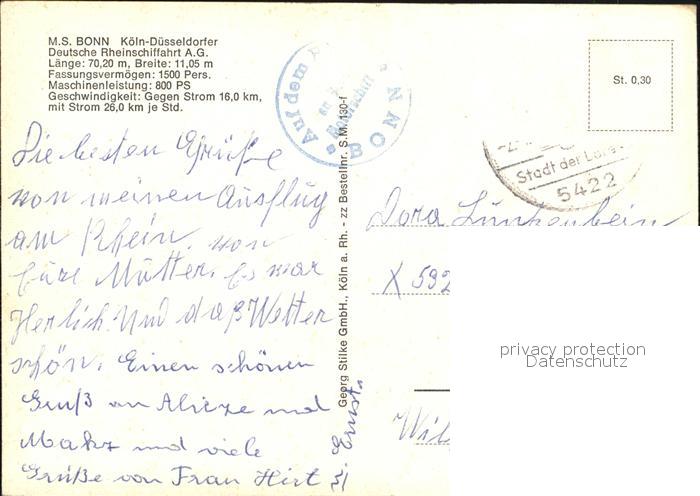 M.S. BONN Köln-Düsseldorfer
Deutsche Rheinschiffahrt A.G.
Länge: 70,20 m, Breite: 11,05 m
Fassungsvermögen: 1500 Pers.
Maschinenleistung: 800 PS
Geschwindigkeit: Gegen Strom 16,0 km,
mit Strom 26,0 km je Std.
Die besten Grüße
von meinen Ausflug
am Rhein. von
Eure Mutter. Es war
Herlich. Und daß Wetter
schön. Einen schönen
Gruß an und
und viele
Grüße von Frau Hirt
Ernst.
Georg Stilke GmbH., Köln a. Rh. - zz Bestellnr. S.M. 130-f
Auf dem
BONN
St. 0,30
Stadt der
5422
Dora
X 592
Wil
privacy protection
Datenschutz